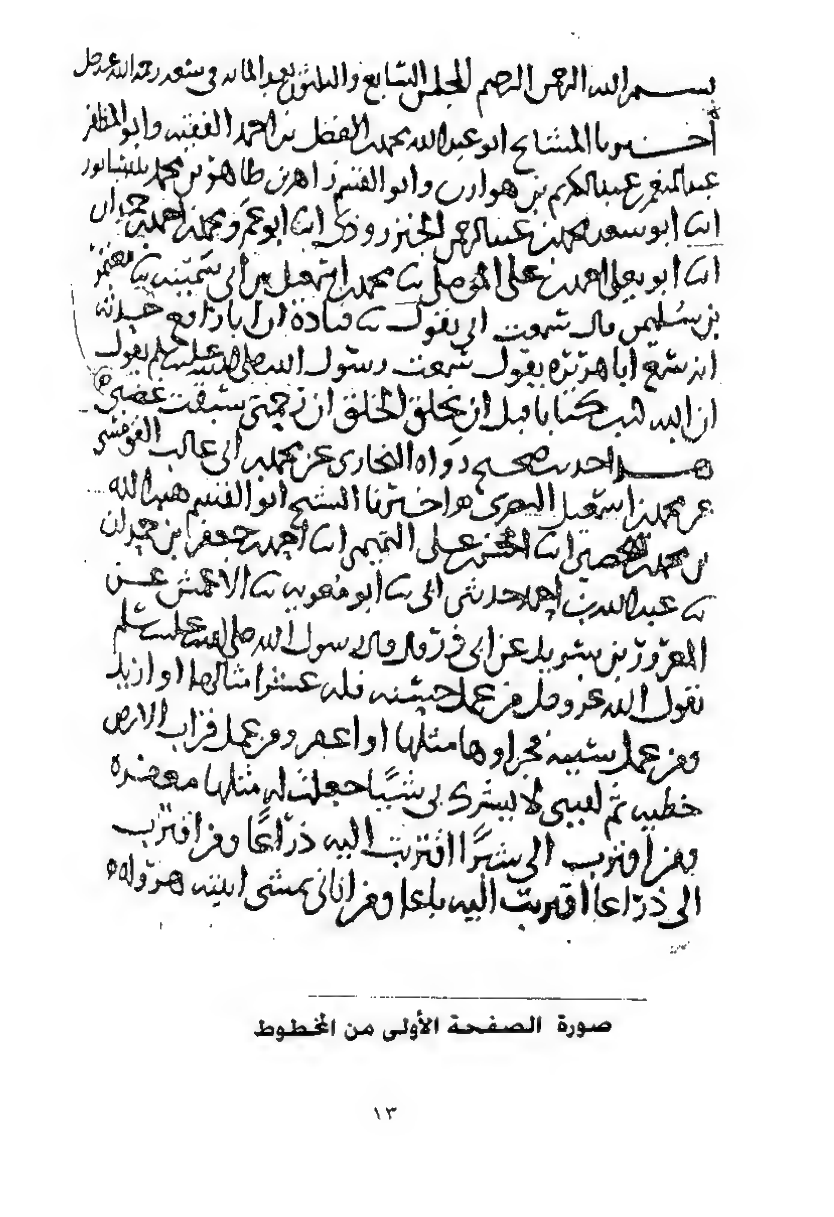 بسم الله الرحمن الرحيم المجلس السابع والثلثون بعد المائه في سعه رحمة الله عز وجل
أخبرنا المشايخ ابو عبد الله محمد بن الفضل بن احمد الفقيه وابو المظفر
عبد المنعم بن عبد الكريم بن هوازن وابو القسم زاهر بن طاهر بن محمد بنيسابور
انا ابو سعد محمد بن عبد الرحمن الجنزروذي انا ابو عمرو محمد بن احمد بن حمدان
انا ابو يعلى احمد بن علي الموصلي نا محمد بن اسمعيل بن ابي سمينه نا معتمر
بن سليمن قال سمعت ابي يقول نا قتادة ان ابا رافع حدثه
انه سمع ابا هريرة يقول سمعت رسول الله صلى الله عليه وسلم يقول
ان الله كتب كتابا قبل ان يخلق الخلق ان رحمتي سبقت غضبي
هذا حديث صحيح رواه البخاري عن محمد بن ابي غالب القومسي
عن محمد بن اسمعيل البصري ه اخبرنا الشيخ ابو القسم هبة الله
بن محمد بن الحصين انا الحسن بن علي التميمي انا احمد بن جعفر ابن حمدان
نا عبد الله بن احمد حدثني ابي نا ابو معويه نا الاعمش عن
المعرور بن سويد عن ابي ذر قال قال رسول الله صلى الله عليه وسلم
يقول الله عز وجل من عمل حسنه فله عشر امثالها او ازيد
ومن عمل سيئه فجزاوها مثلها او اغفر ومن عمل قراب الارض
خطيه ثم لقيني لا يشرك بي شيئا جعلت له مثلها مغفرة
ومن اقترب الي شبرا اقتربت اليه ذراعا ومن اقترب
الي ذراعا اقتربت اليه باعا ومن اتاني يمشي اتيته هروله
صورة الصفحة الأولى من المخطوط
١٣